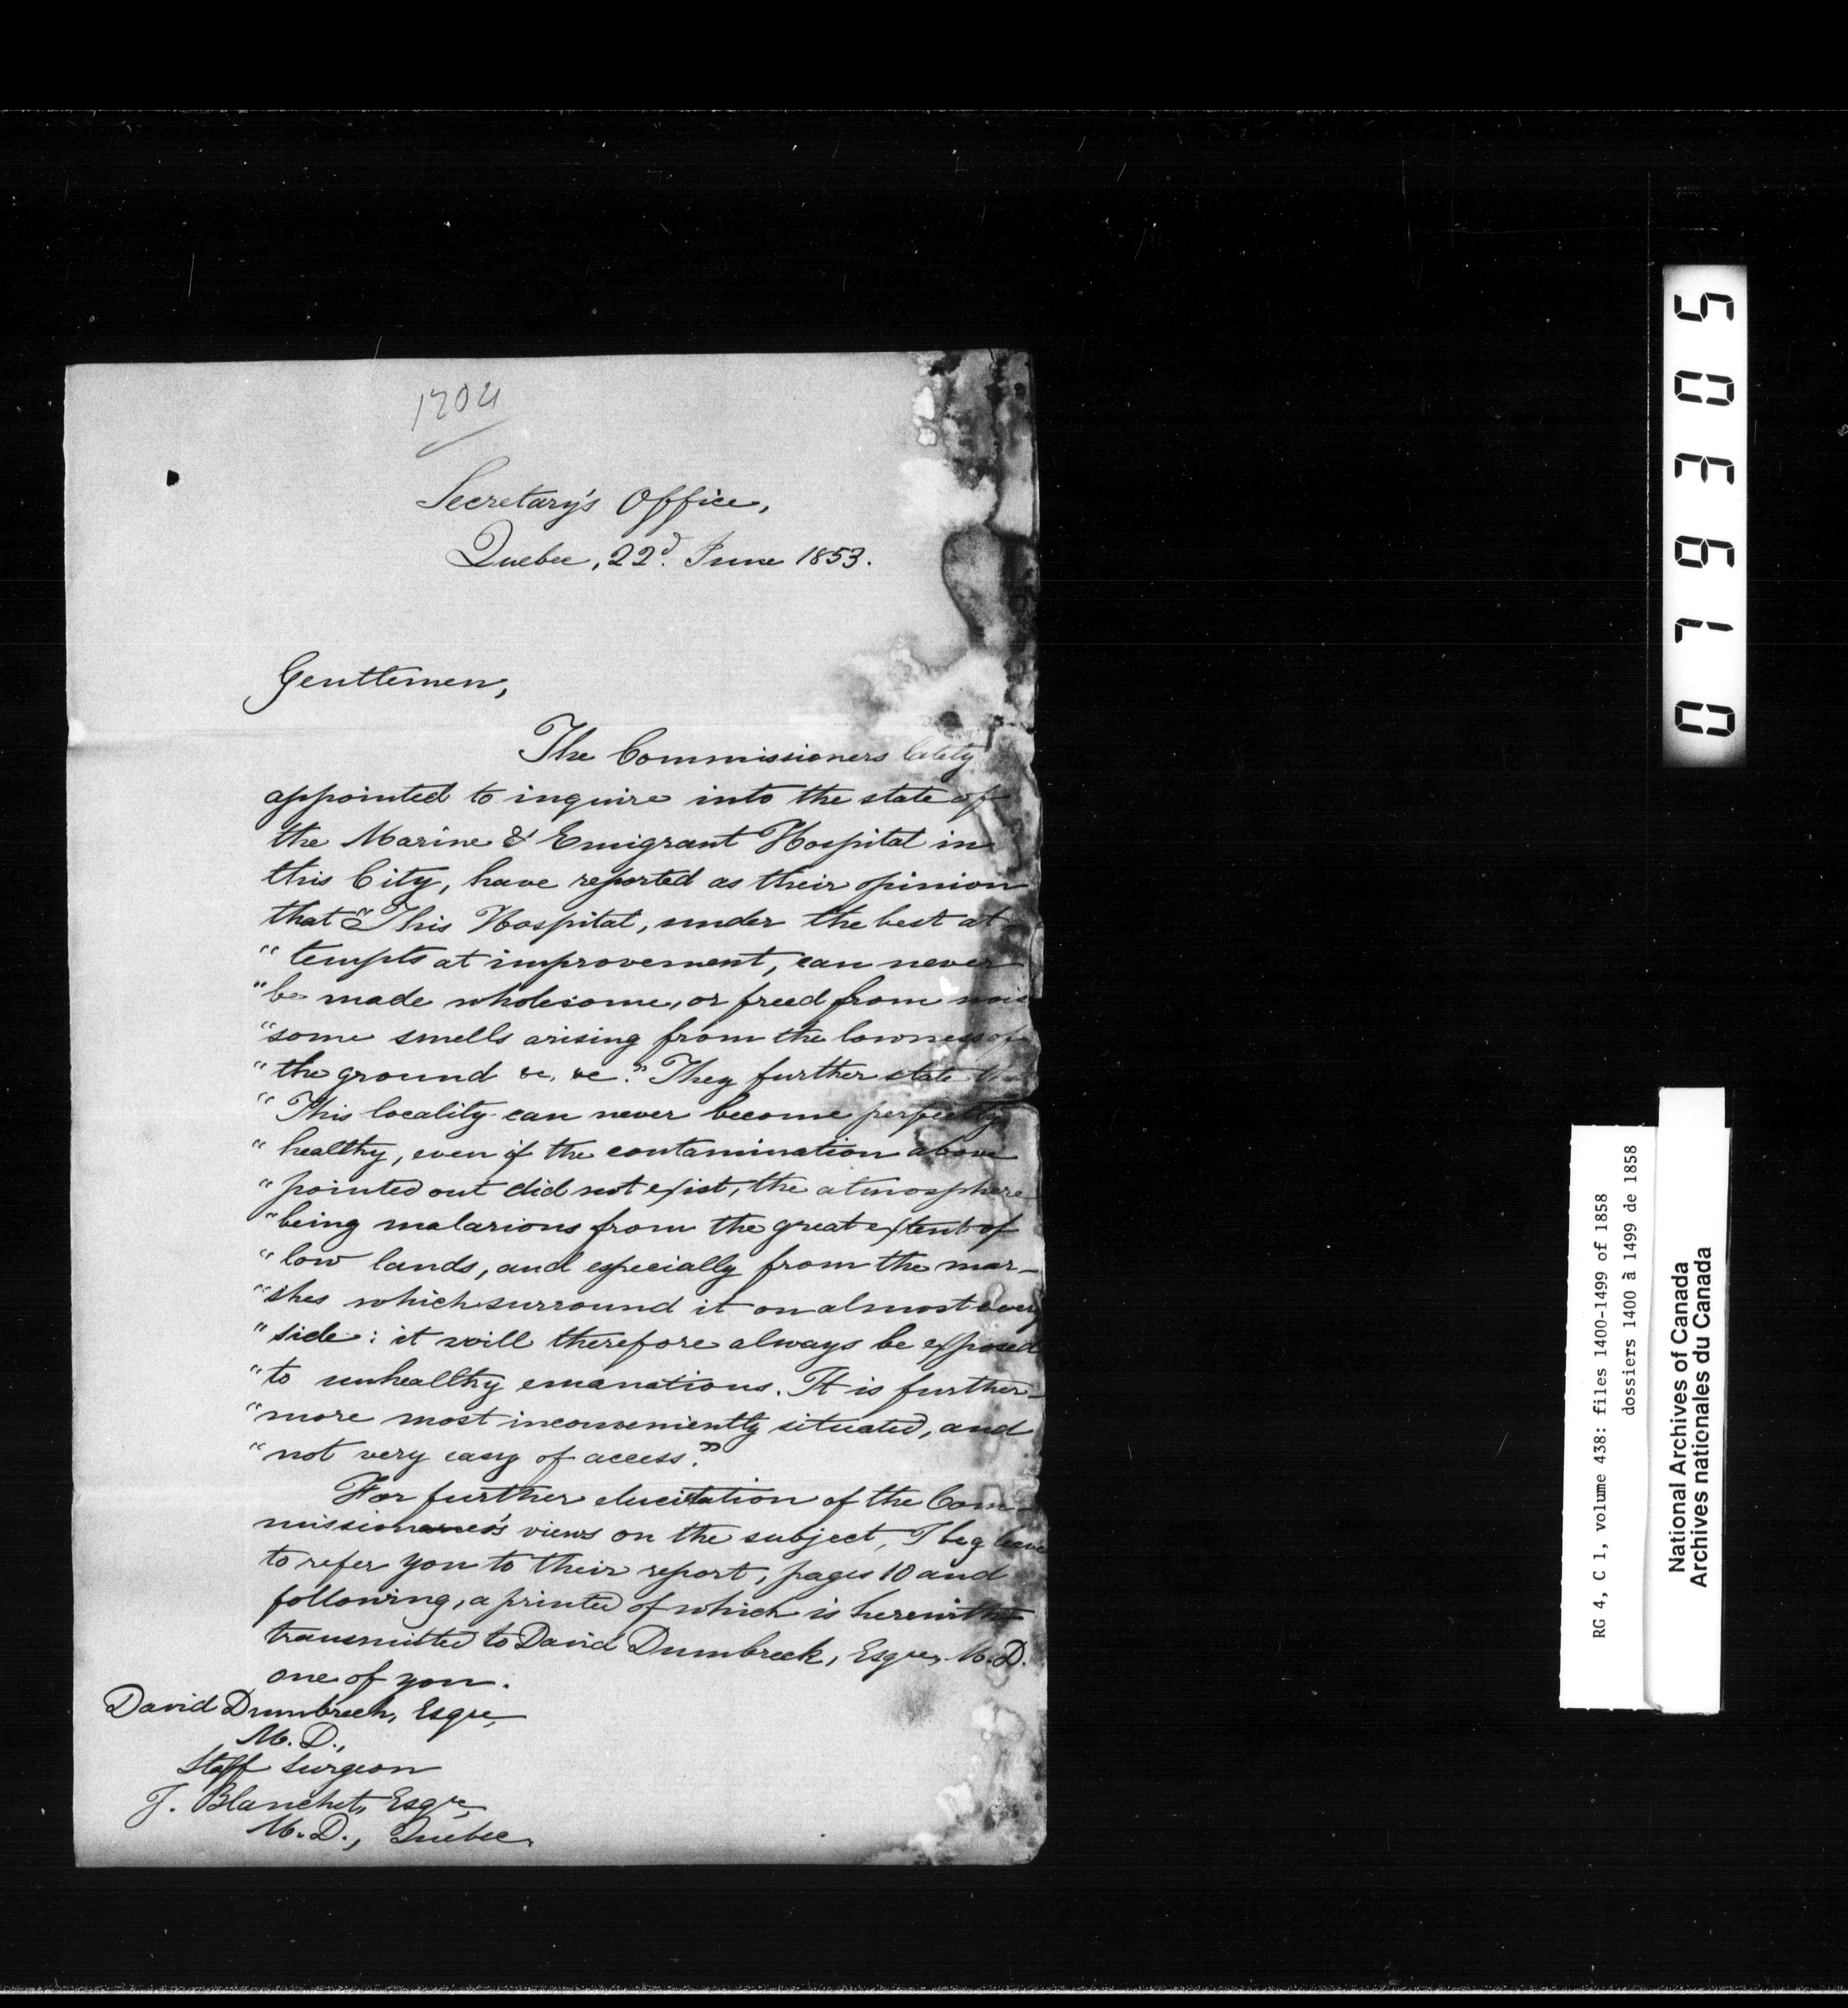 1204
Secretary's Office,
Quebec, 22d. June 1853.
Gentlemen,
The Commissioners lately
appointed to inquire into the state of
the Marine & Emigrant Hospital in
this City, have reported as their opinion
that "This Hospital, under the best at-
"tempts at improvement, can never
"be made wholesome, or freed from noi
"some smells arising from the lowness of
"the ground &c, &c." They further state
"This locality can never become perfectly
"healthy, even if the contamination above
"pointed out did not exist, the atmosphere
"being malarious from the great extent of
"low lands, and especially from the mar-
"shes which surround it on almost every
"side: it will therefore always be exposed
"to unhealthy emanations. It is further-
"more most inconveniently situated, and
"not very easy of access."
For further elucitation of the Com-
missioner's views on the subject, I beg leave
to refer you to their report, pages 10 and
following, a printed of which is herewith
transmitted to David Dumbreck, Esqre, M.D.
one of you.
David Dumbreck, Esqre,
M.D.,
Staff Surgeon
J. Blanchet, Esqre,
M.D., Quebec.
019305
RG 4, C 1, volume 438: files 1400-1499 of 1858
dossiers 1400 à 1499 de 1858
National Archives of Canada
Archives nationales du Canada